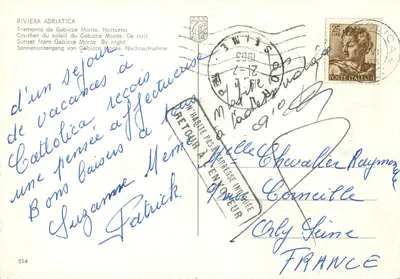 RIVIERA ADRIATICA
Tramonto da Gabicce Monte. Notturno
Coucher du soleil du Gabicce Monte. De nuit
Sunset from Gabicce Monte. By night
Sonnenuntergang von Gabicce Monte. Nachtaufnahme
d'un séjour
de vacances à
Cattolica reçois
une pensée affectueuse
Bons baisers à tous
Suzanne Mémé
Patrick.
POSTE ITALIANE
21-7
1969
N'HABITE PAS A L'ADRESSE INDIQUÉE
RETOUR A L'ENVOYEUR
Melle Chevallier Raymonde
rue Corneille
Orly Seine
FRANCE
514